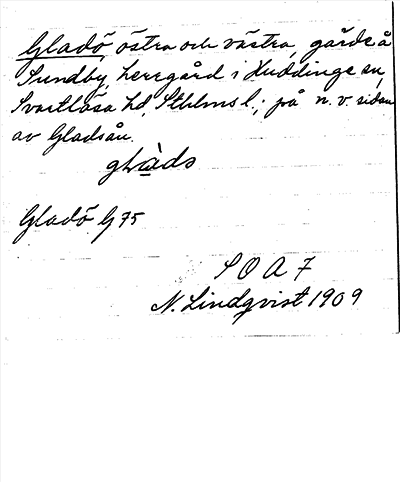 Gladö, östra och västra, gårde å
Sundby, herregård i Huddinge sn,
Svartlösa hd, Sthlms l.; på n.v. sidan
av Gladöån.
glàdö
Gladö G 75
S O A 7
N. Lindqvist 1909